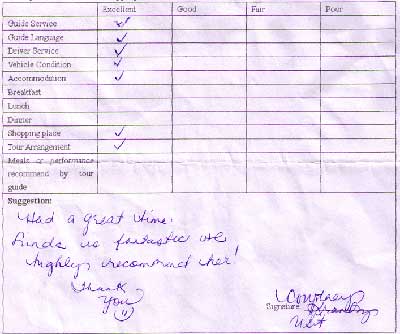 Excellent Good Fair Poor
Guide Service ✓
Guide Language ✓
Driver Service ✓
Vehicle Condition ✓
Accommodation ✓
Breakfast
Lunch
Dinner
Shopping place ✓
Tour Arrangement ✓
Meals or performance
recommend by tour
guide
Suggestion:
Had a great time.
is fantastic we
highly recommend her!
Thank
You
Signature Courtney